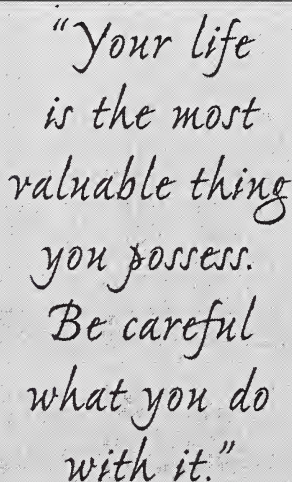 “Your life
is the most
valuable thing
you possess.
Be careful
what you do
with it.”